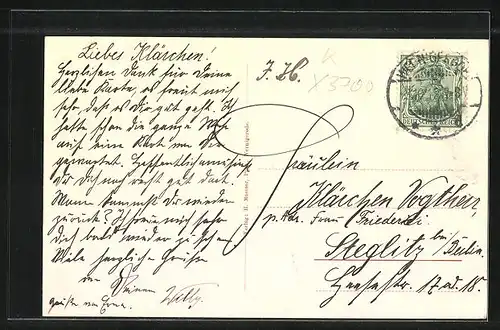 Liebes Klärchen!
Herzlichen Dank für Deine
liebe Karte, es freut mich
sehr, daß es Dir gut geht. Ich
hatte schon die ganze Woche
auf eine Karte von Dir
gewartet. Hoffentlich amüsierst
Du Dich noch recht gut dort.
Wann kommst Du wieder
zurück? Ich freue mich sehr
Dich bald wieder zu sehen.
Viele herzliche Grüße
von Deinem
Willy.
Grüße von Erna.
F. H.
K
X3700
Fräulein
Klärchen Vogtherr
p. Adr. Frau Friederici
Steglitz bei Berlin.
18.